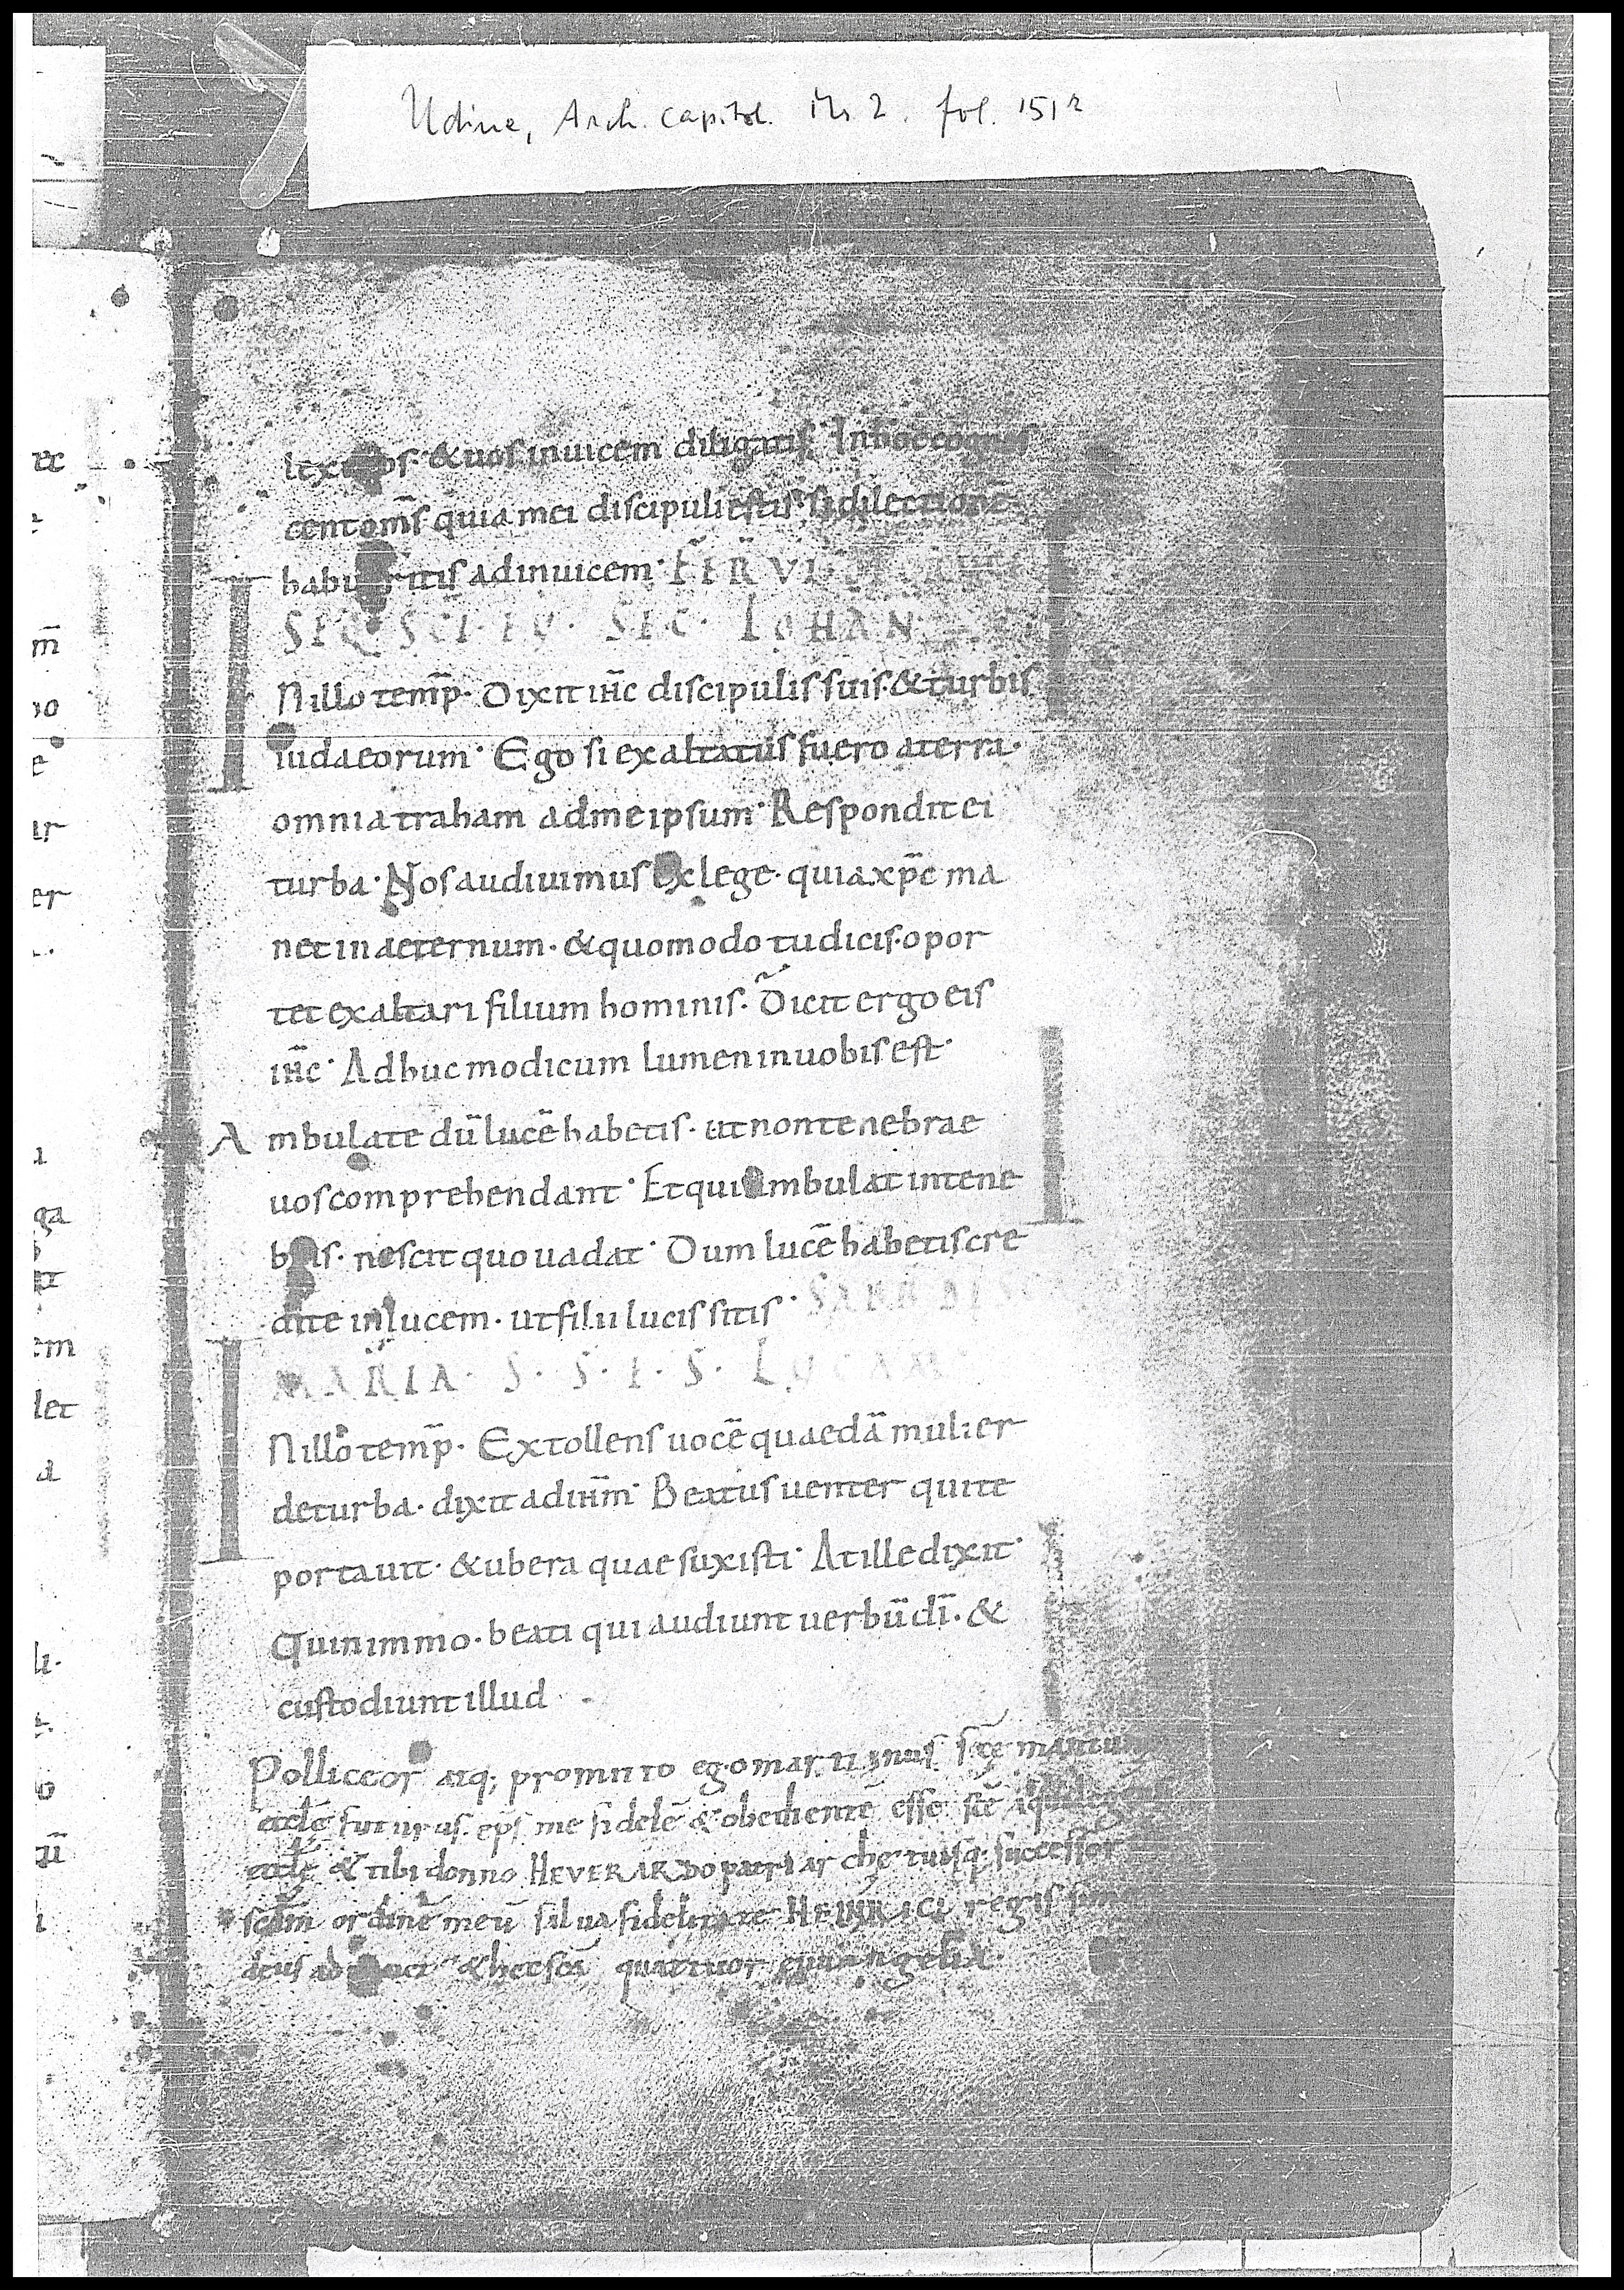 Udine, Arch. capitol. Ms 2. fol. 151r
&uos inuicem diligatis· Inhoccognos
centom̄s quia mei discipuliestis· si dilectionē
ritis adinuicem· FER̄ VI
SEQ· SCI· EV· SEC· IOHAN
I Nillo temp̄· Dixit ih̄c discipulis suis·&turbis
iudaeorum· Ego si exaltatus fuero aterra·
omnia traham admeipsum· Respondit ei
turba· Nos audiuimus ex lege· quia xp̄c ma
net in aeternum· &quomodo tu dicis· opor
tet exaltari filium hominis· Dicit ergo eis
ih̄c· Adhuc modicum lumen inuobis est·
Ambulate dū lucē habetis· ut non tenebrae
uos comprehendant· Et qui ambulat intene
bris· nescit quo uadat· Dum lucē habetis cre
dite in lucem· ut filii lucis sitis·
MARIA· S· S· E· S· LUCAM
I Nillo temp̄· Extollens uocē quaedā mulier
deturba· dixit adih̄m· Beatus uenter qui te
portauit· &ubera quae suxisti· At ille dixit·
Quinimmo· beati qui audiunt uerbū dī· &
custodiunt illud
Polliceor atq; promitto ego mar
eccłe futurus· ep̄s me fidelē &obedientē esse scē
eccłe & tibi donno HEVERARDO patriarche tuisq; successor
scdm̄ ordinē meū salua fidelitate HEINRICI regis
&hec scā quattuor euuangelia·